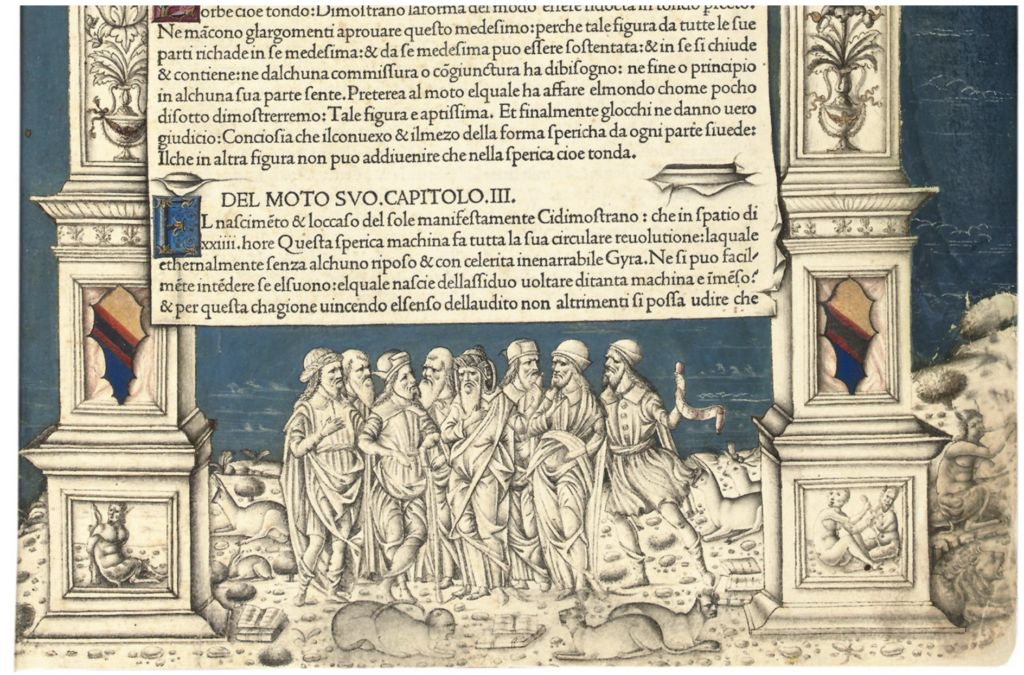 orbe cioe tondo: Dimoſtrano laforma del modo eſſere ridocta in tondo
Ne mācono glargomenti aprouare queſto medeſimo: perche tale figura da tutte le ſue
parti richade in ſe medeſima: & da ſe medeſima puo eſſere ſoſtentata: & in ſe ſi chiude
& contiene: ne dalchuna commiſſura o cōgiunctura ha dibiſogno: ne fine o principio
in alchuna ſua parte ſente. Preterea al moto elquale ha affare elmondo chome pocho
diſotto dimoſtrerremo: Tale figura e aptiſſima. Et finalmente glocchi ne danno uero
giudicio: Concioſia che ilconuexo & ilmezo della forma ſpericha da ogni parte ſiuede:
Ilche in altra figura non puo addiuenire che nella ſperica cioe tonda.
DEL MOTO SVO. CAPITOLO. III.
IL naſcimēto & loccaſo del ſole manifeſtamente Cidimoſtrano: che in ſpatio di
xxiiii. hore Queſta ſperica machina fa tutta la ſua circulare reuolutione: laquale
ethernalmente ſenza alchuno ripoſo & con celerita inenarrabile Gyra. Ne ſi puo facil⸗
mēte intēdere ſe elſuono: elquale naſcie dellaſſiduo uoltare ditanta machina e īmēſo:
& per queſta chagione uincendo elſenſo dellaudito non altrimenti ſi poſſa udire che